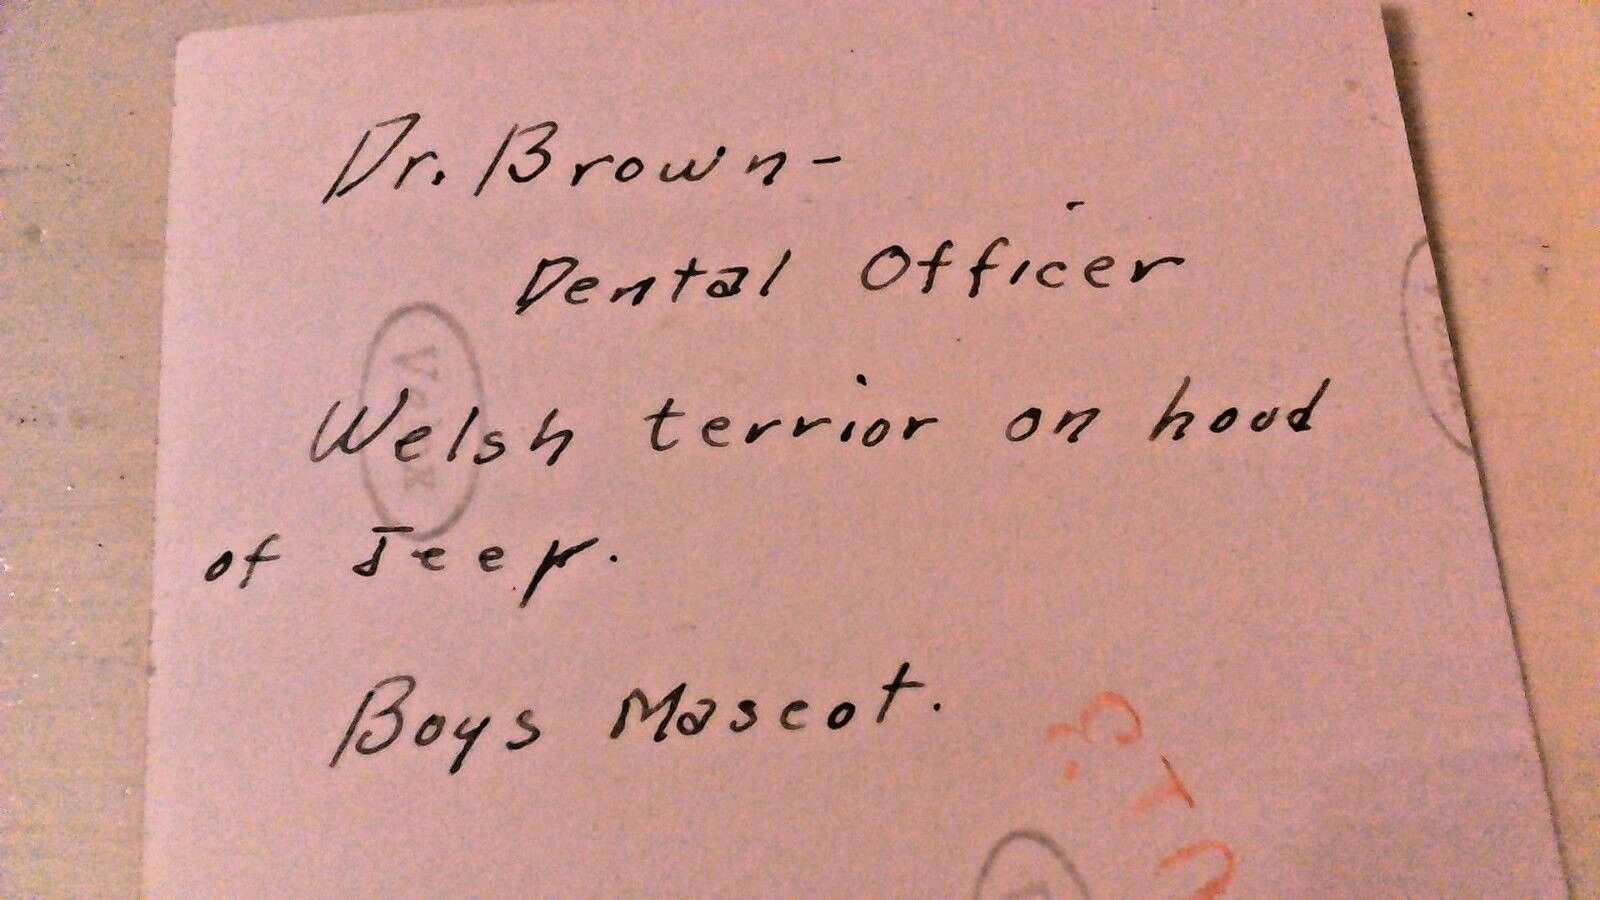 Dr. Brown-
Dental Officer
Welsh terrior on hood
of Jeep.
Boys Mascot.
Velox